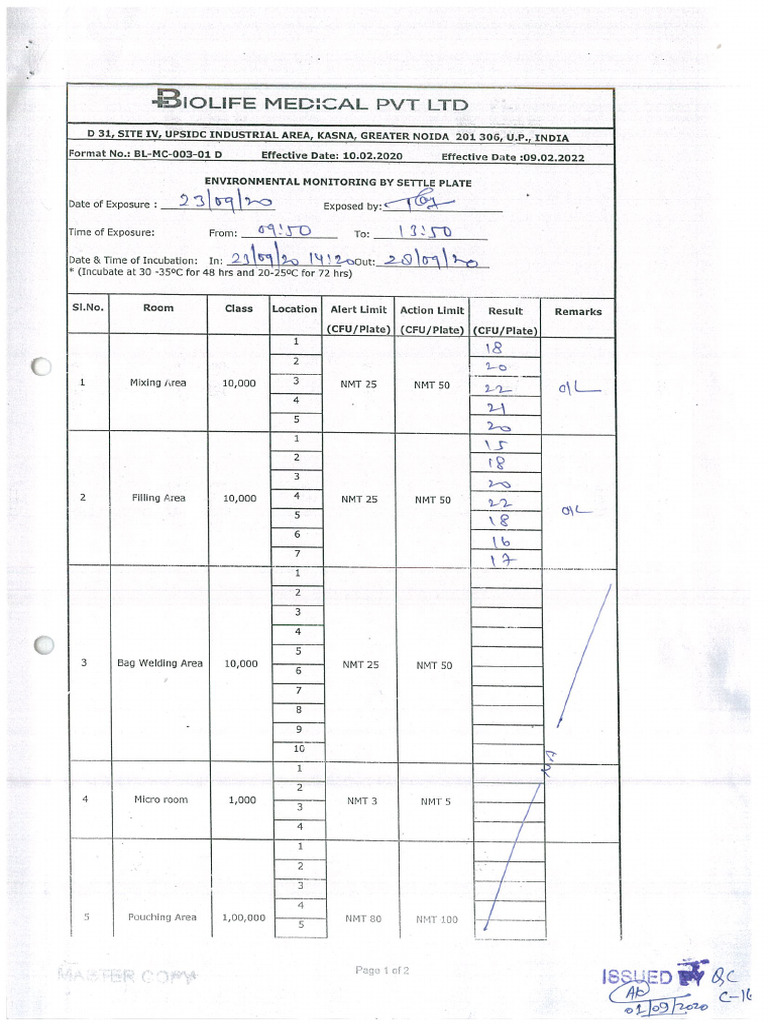 BIOLIFE MEDICAL PVT LTD
D 31, SITE IV, UPSIDC INDUSTRIAL AREA, KASNA, GREATER NOIDA 201 306, U.P., INDIA
Format No.: BL-MC-003-01 D Effective Date: 10.02.2020 Effective Date :09.02.2022
ENVIRONMENTAL MONITORING BY SETTLE PLATE
Date of Exposure : 23/09/20 Exposed by:
Time of Exposure: From: 09:50 To: 13:50
Date & Time of Incubation: In: 23/09/20 14:20 Out: 28/09/20
* (Incubate at 30 -35ºC for 48 hrs and 20-25ºC for 72 hrs)
Sl.No. Room Class Location Alert Limit Action Limit Result Remarks
(CFU/Plate) (CFU/Plate) (CFU/Plate)
1 18
2 20
1 Mixing Area 10,000 3 NMT 25 NMT 50 22
4 21
5 20
1 15
2 18
3 20
2 Filling Area 10,000 4 NMT 25 NMT 50 22
5 18
6 16
7 17
1
2
3
4
5
3 Bag Welding Area 10,000 6 NMT 25 NMT 50
7
8
9
10
NA
1
2
4 Micro room 1,000 3 NMT 3 NMT 5
4
1
2
3
4
5 Pouching Area 1,00,000 5 NMT 80 NMT 100
Page 1 of 2
MASTER COPY
ISSUED BY QC
C-16
01/09/2020